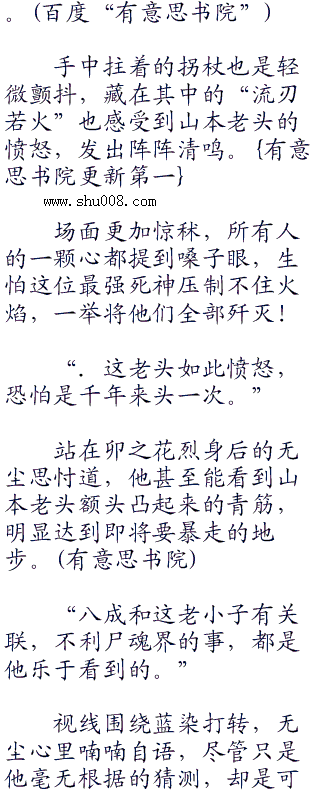 。(百度“有意思书院”)
手中拄着的拐杖也是轻
微颤抖，藏在其中的“流刃
若火”也感受到山本老头的
愤怒，发出阵阵清鸣。{有意
思书院更新第一}
www.shu008.com
场面更加惊秫，所有人
的一颗心都提到嗓子眼，生
怕这位最强死神压制不住火
焰，一举将他们全部歼灭！
“．这老头如此愤怒，
恐怕是千年来头一次。”
站在卯之花烈身后的无
尘思忖道，他甚至能看到山
本老头额头凸起来的青筋，
明显达到即将要暴走的地
步。(有意思书院)
“八成和这老小子有关
联，不利尸魂界的事，都是
他乐于看到的。”
视线围绕蓝染打转，无
尘心里喃喃自语，尽管只是
他毫无根据的猜测，却是可